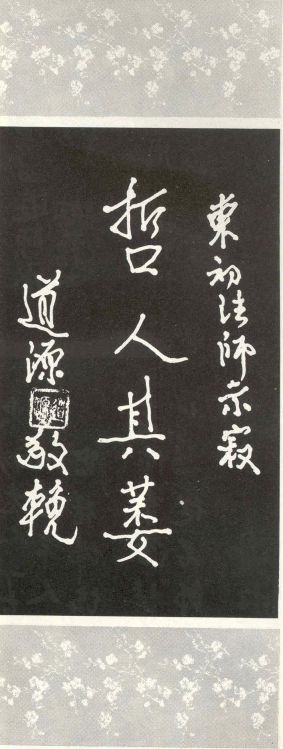 東初法師示寂
哲人其萎
道源敬輓